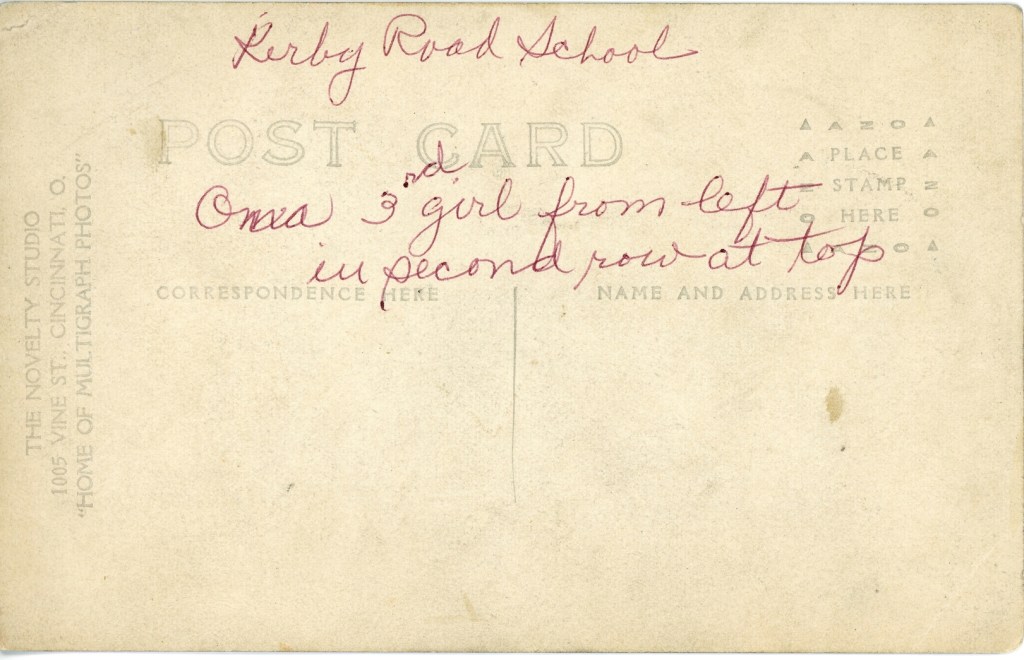 Kerby Road School
POST CARD
AZO
PLACE
STAMP
HERE
AZO
Oma 3rd girl from left
in second row at top
CORRESPONDENCE HERE
NAME AND ADDRESS HERE
THE NOVELTY STUDIO
1005 VINE ST., CINCINNATI, O.
"HOME OF MULTIGRAPH PHOTOS"